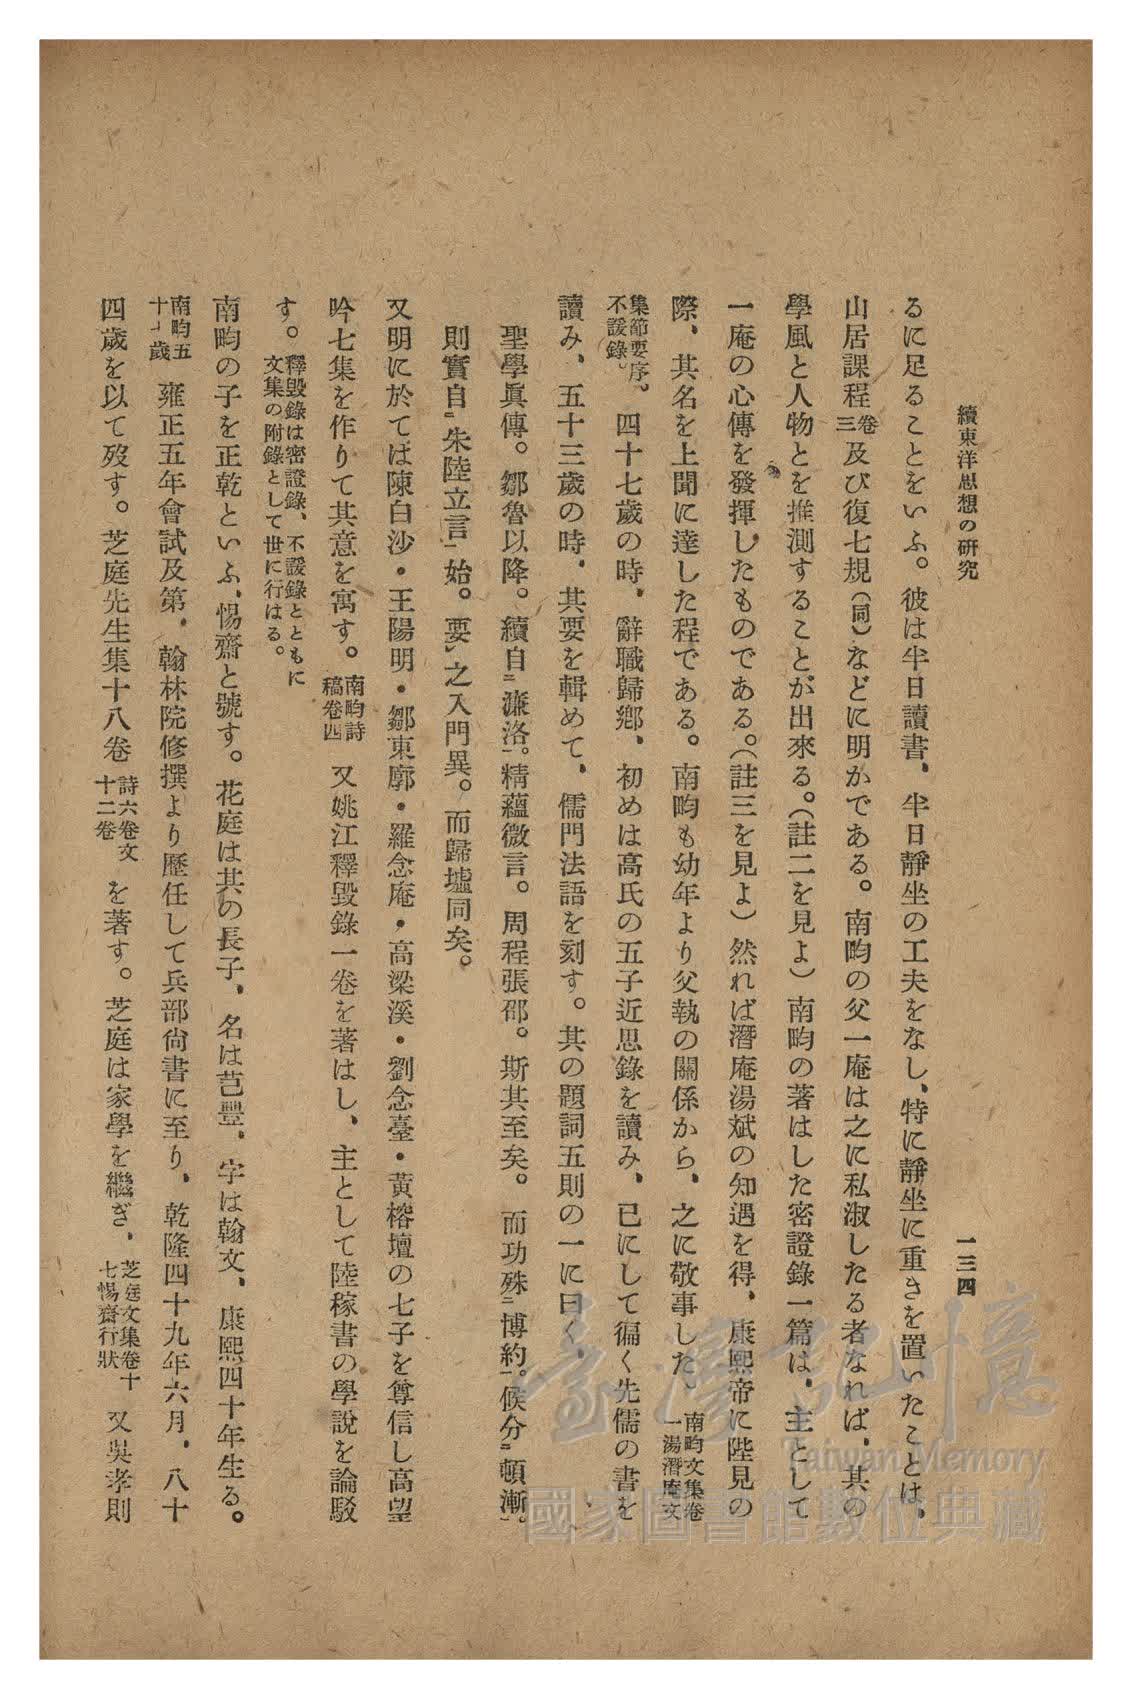 續東洋思想の研究
一三四
るに足ることをいふ。彼は半日讀書、半日靜坐の工夫をなし、特に靜坐に重きを置いたことは、
山居課程卷三及び復七規（同）などに明かである。南畇の父一庵は之に私淑したる者なれば、其の
學風と人物とを推測することが出來る。（註二を見よ）南畇の著はした密證錄一篇は、主として
一庵の心傳を發揮したものである。（註三を見よ）然れば潛庵湯斌の知遇を得、康熙帝に陛見の
際、其名を上聞に達した程である。南畇も幼年より父執の關係から、之に敬事した。南畇文集卷一湯潛庵文
集節要序。不諼錄。四十七歲の時、辭職歸鄕、初めは高氏の五子近思錄を讀み、已にして徧く先儒の書を
讀み、五十三歲の時、其要を輯めて、儒門法語を刻す。其の題詞五則の一に曰く、
聖學眞傳。鄒魯以降。續自二濂洛一。精蘊微言。周程張邵。斯其至矣。而功殊二博約一。候分二頓漸一。
則實自二朱陸立言一始。要レ之入門異。而歸墟同矣。
又明に於ては陳白沙・王陽明・鄒東廓・羅念庵・高梁溪・劉念臺・黃榕壇の七子を尊信し高望
吟七集を作りて其意を寓す。南畇詩稿卷四 又姚江釋毀錄一卷を著はし、主として陸稼書の學說を論駁
す。釋毀錄は密證錄、不諼錄とともに文集の附錄として世に行はる。
南畇の子を正乾といふ、惕齋と號す。花庭は其の長子、名は芑豐、字は翰文、康熙四十年生る。
南畇五十一歲 雍正五年會試及第、翰林院修撰より歷任して兵部尙書に至り、乾隆四十九年六月、八十
四歲を以て歿す。芝庭先生集十八卷詩六卷文十二卷 を著す。芝庭は家學を繼ぎ、芝庭文集卷十七惕齋行狀 又吳孝則
臺灣記憶
Taiwan Memory
國家圖書館數位典藏